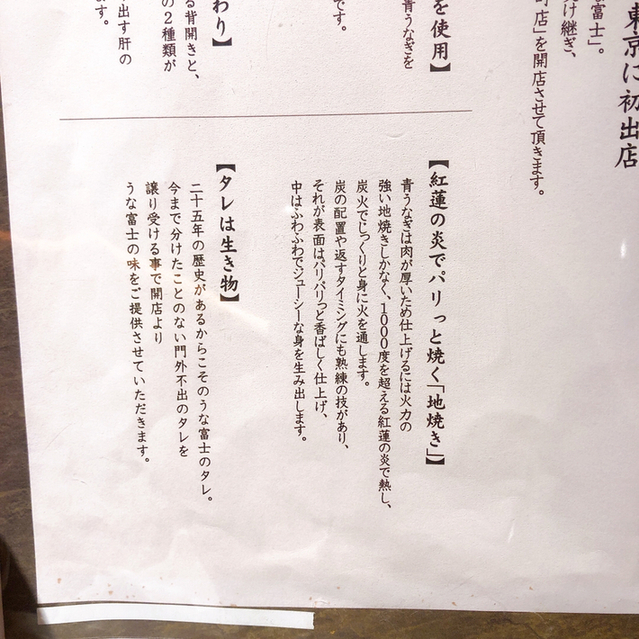 東京に初出店
富士」。
け継ぎ、
店」を開店させて頂きます。
を使用】
青うなぎを
です。
わり】
る背開きと、
の2種類が
出す肝の
ます。
【紅蓮の炎でパリっと焼く「地焼き」】
青うなぎは肉が厚いため仕上げるには火力の
強い地焼きしかなく、1000度を超える紅蓮の炎で熱し、
炭火でじっくりと身に火を通します。
炭の配置や返すタイミングにも熟練の技があり、
それが表面はパリパリっと香ばしく仕上げ、
中はふわふわでジューシーな身を生み出します。
【タレは生き物】
二十五年の歴史があるからこそのうな富士のタレ。
今まで分けたことのない門外不出のタレを
譲り受ける事で開店より
うな富士の味をご提供させていただきます。